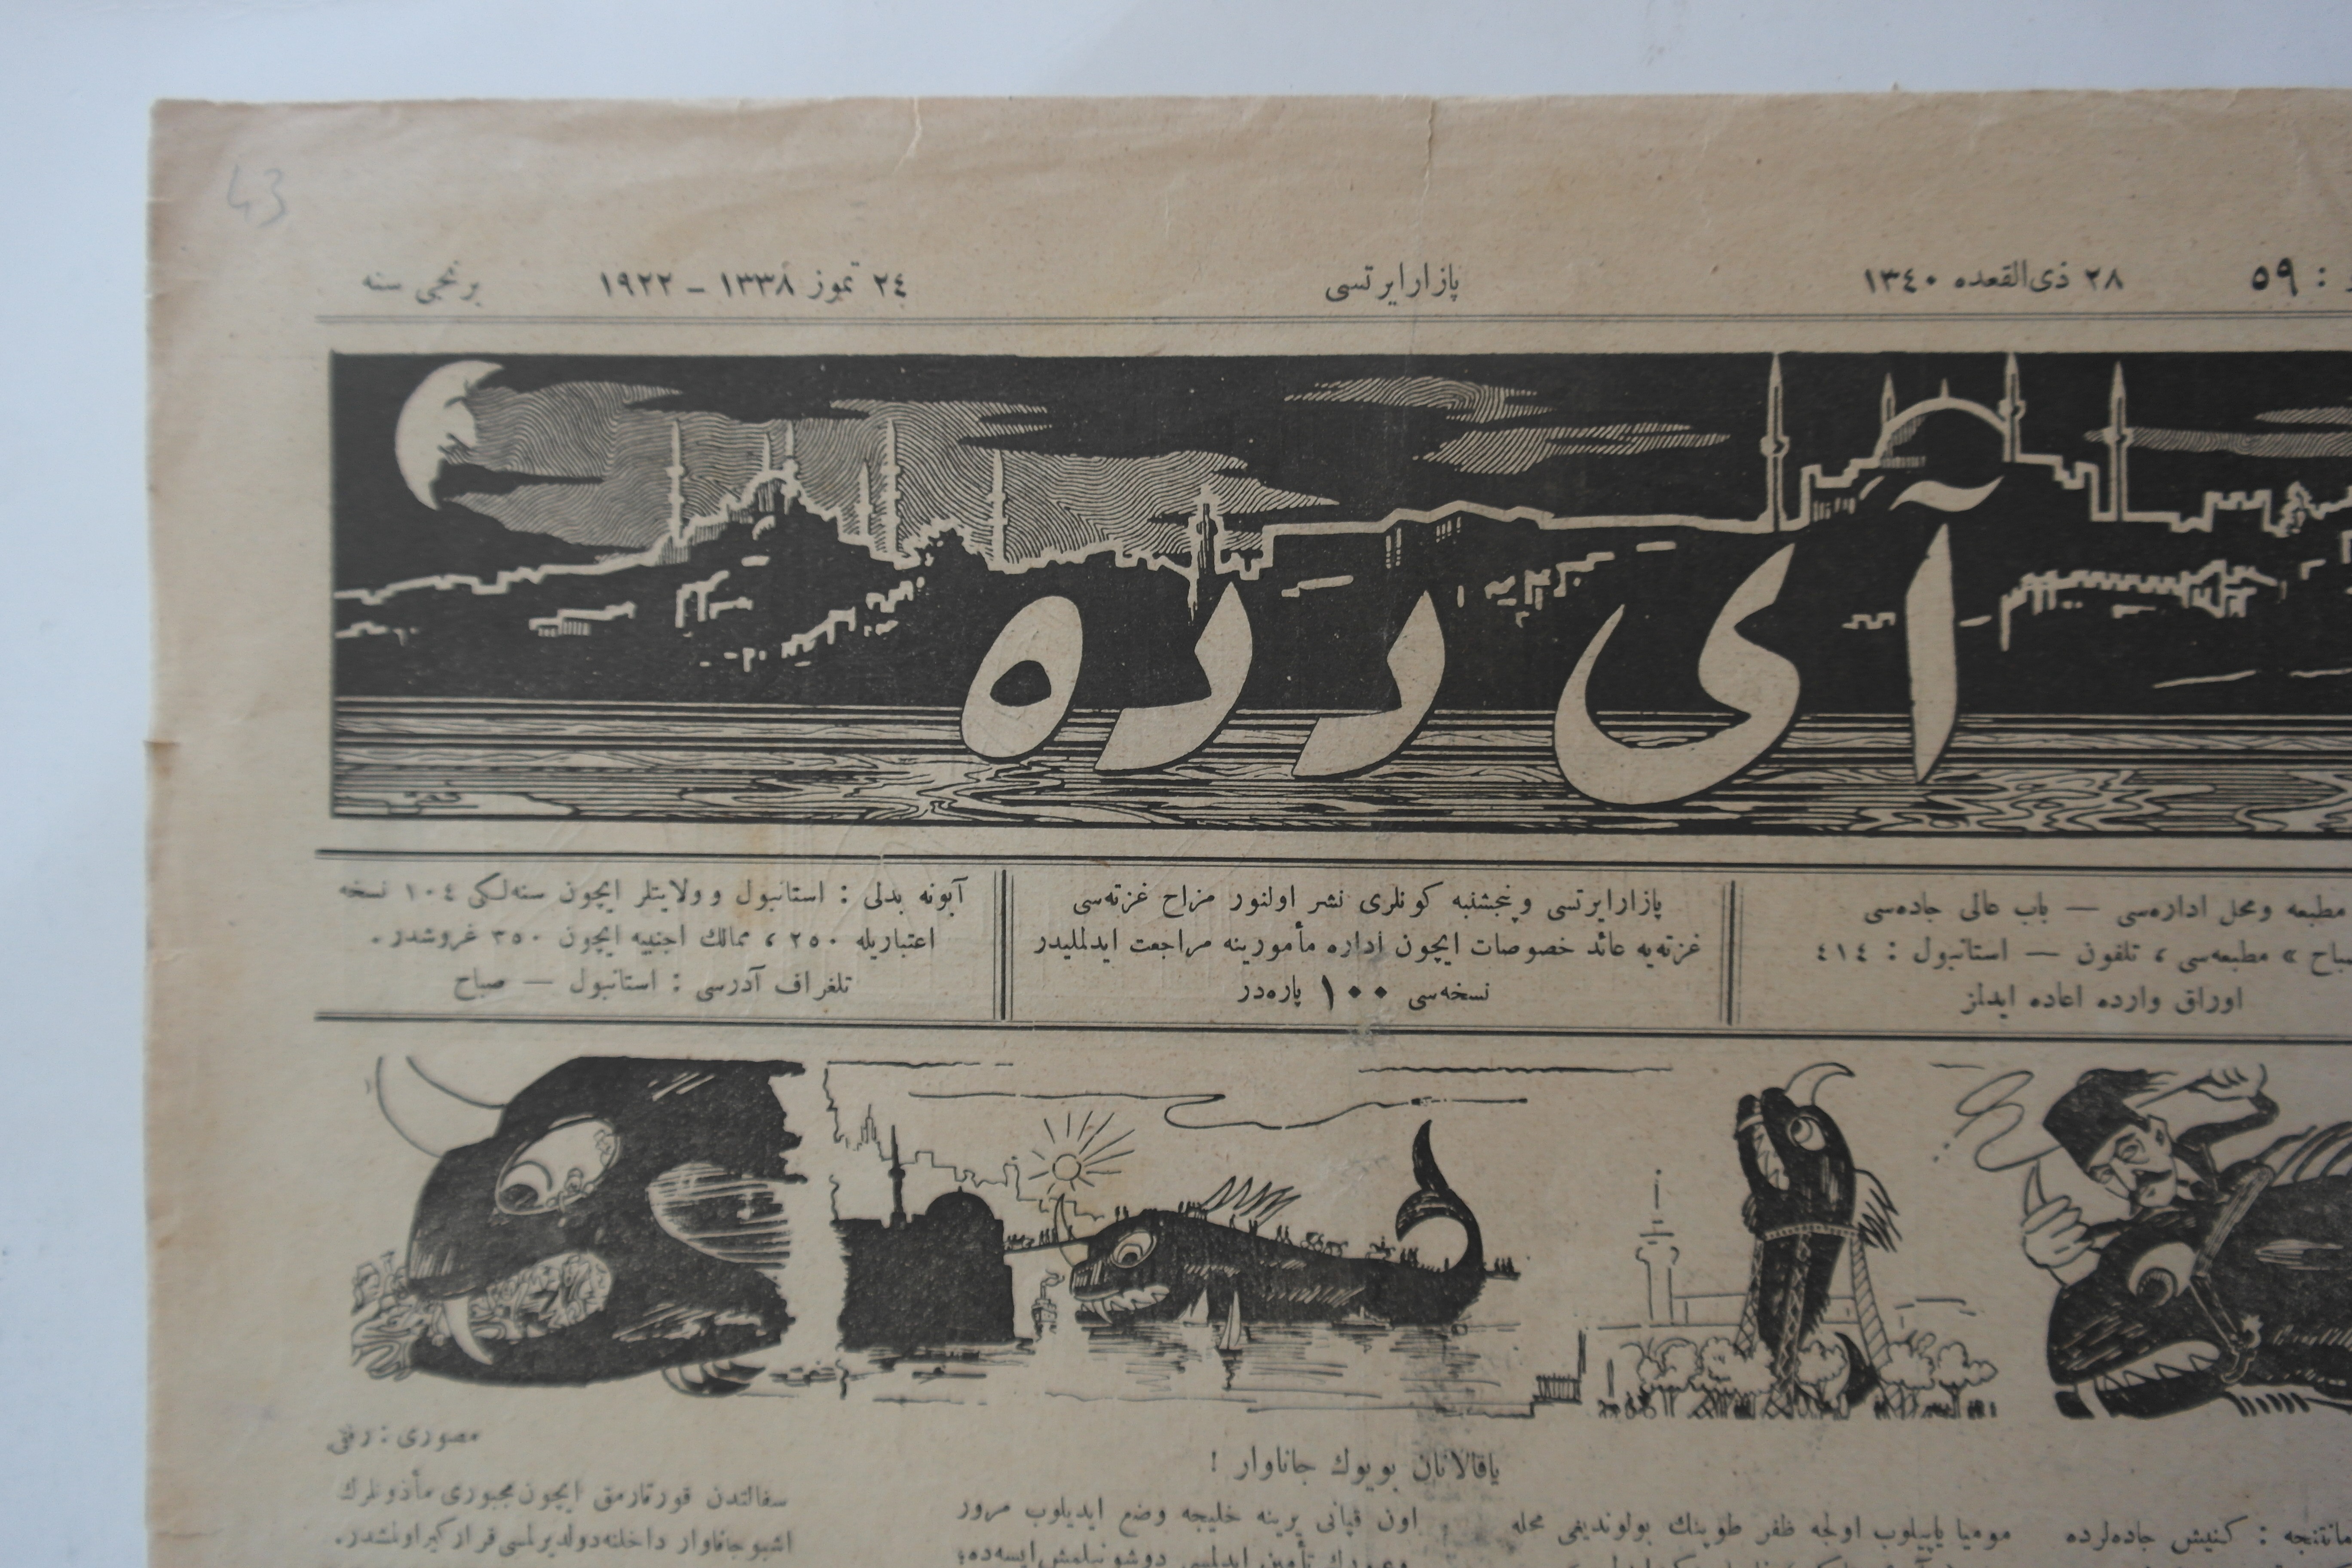 43
: ٥٩
٢٨ ذی‌القعده ١٣٤٠
پازارایرتسی
٢٤ تموز ١٣٣٨ – ١٩٢٢
برنجی سنه
آی ده ده
مطبعه ومحل اداره‌سی — باب عالی جاده‌سی
صباح » مطبعه‌سی ، تلفون — استانبول : ٤١٤
اوراق وارده اعاده ایدلز
پازارایرتسی وپنجشنبه کونلری نشر اولنور مزاح غزته‌سی
غزته‌یه عائد خصوصات ایچون اداره مأمورینه مراجعت ایدلملیدر
نسخه‌سی ١٠٠ پاره‌در
آبونه بدلی : استانبول وولایتلر ایچون سنه‌لکی ١٠٤ نسخه
اعتباریله ٢٥٠ ، ممالك اجنبیه ایچون ٣٥٠ غروشدر .
تلغراف آدرسی : استانبول — صباح
مصوری : رفقی
یاقالانان بویوك جاناوار !
: کنیش جاده‌لرده
مومیا یاپیلوب اولجه ظفر طوپنك بولوندیغی محله
اون قپانی یرینه خلیجه وضع ایدیلوب مرور
سفالتدن قورتارمق ایچون مجبوری مأذونلرك
اشبو جاناوار داخلنه دولدیرلمسی قرارکیر اولمشدر.